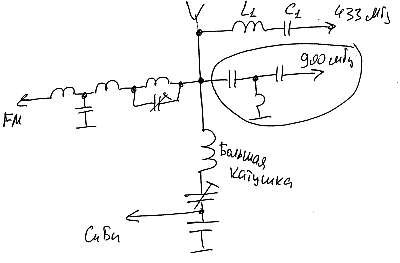 L1 C1 433 мГц
900 мГц
FM
Большая
катушка
СиБи